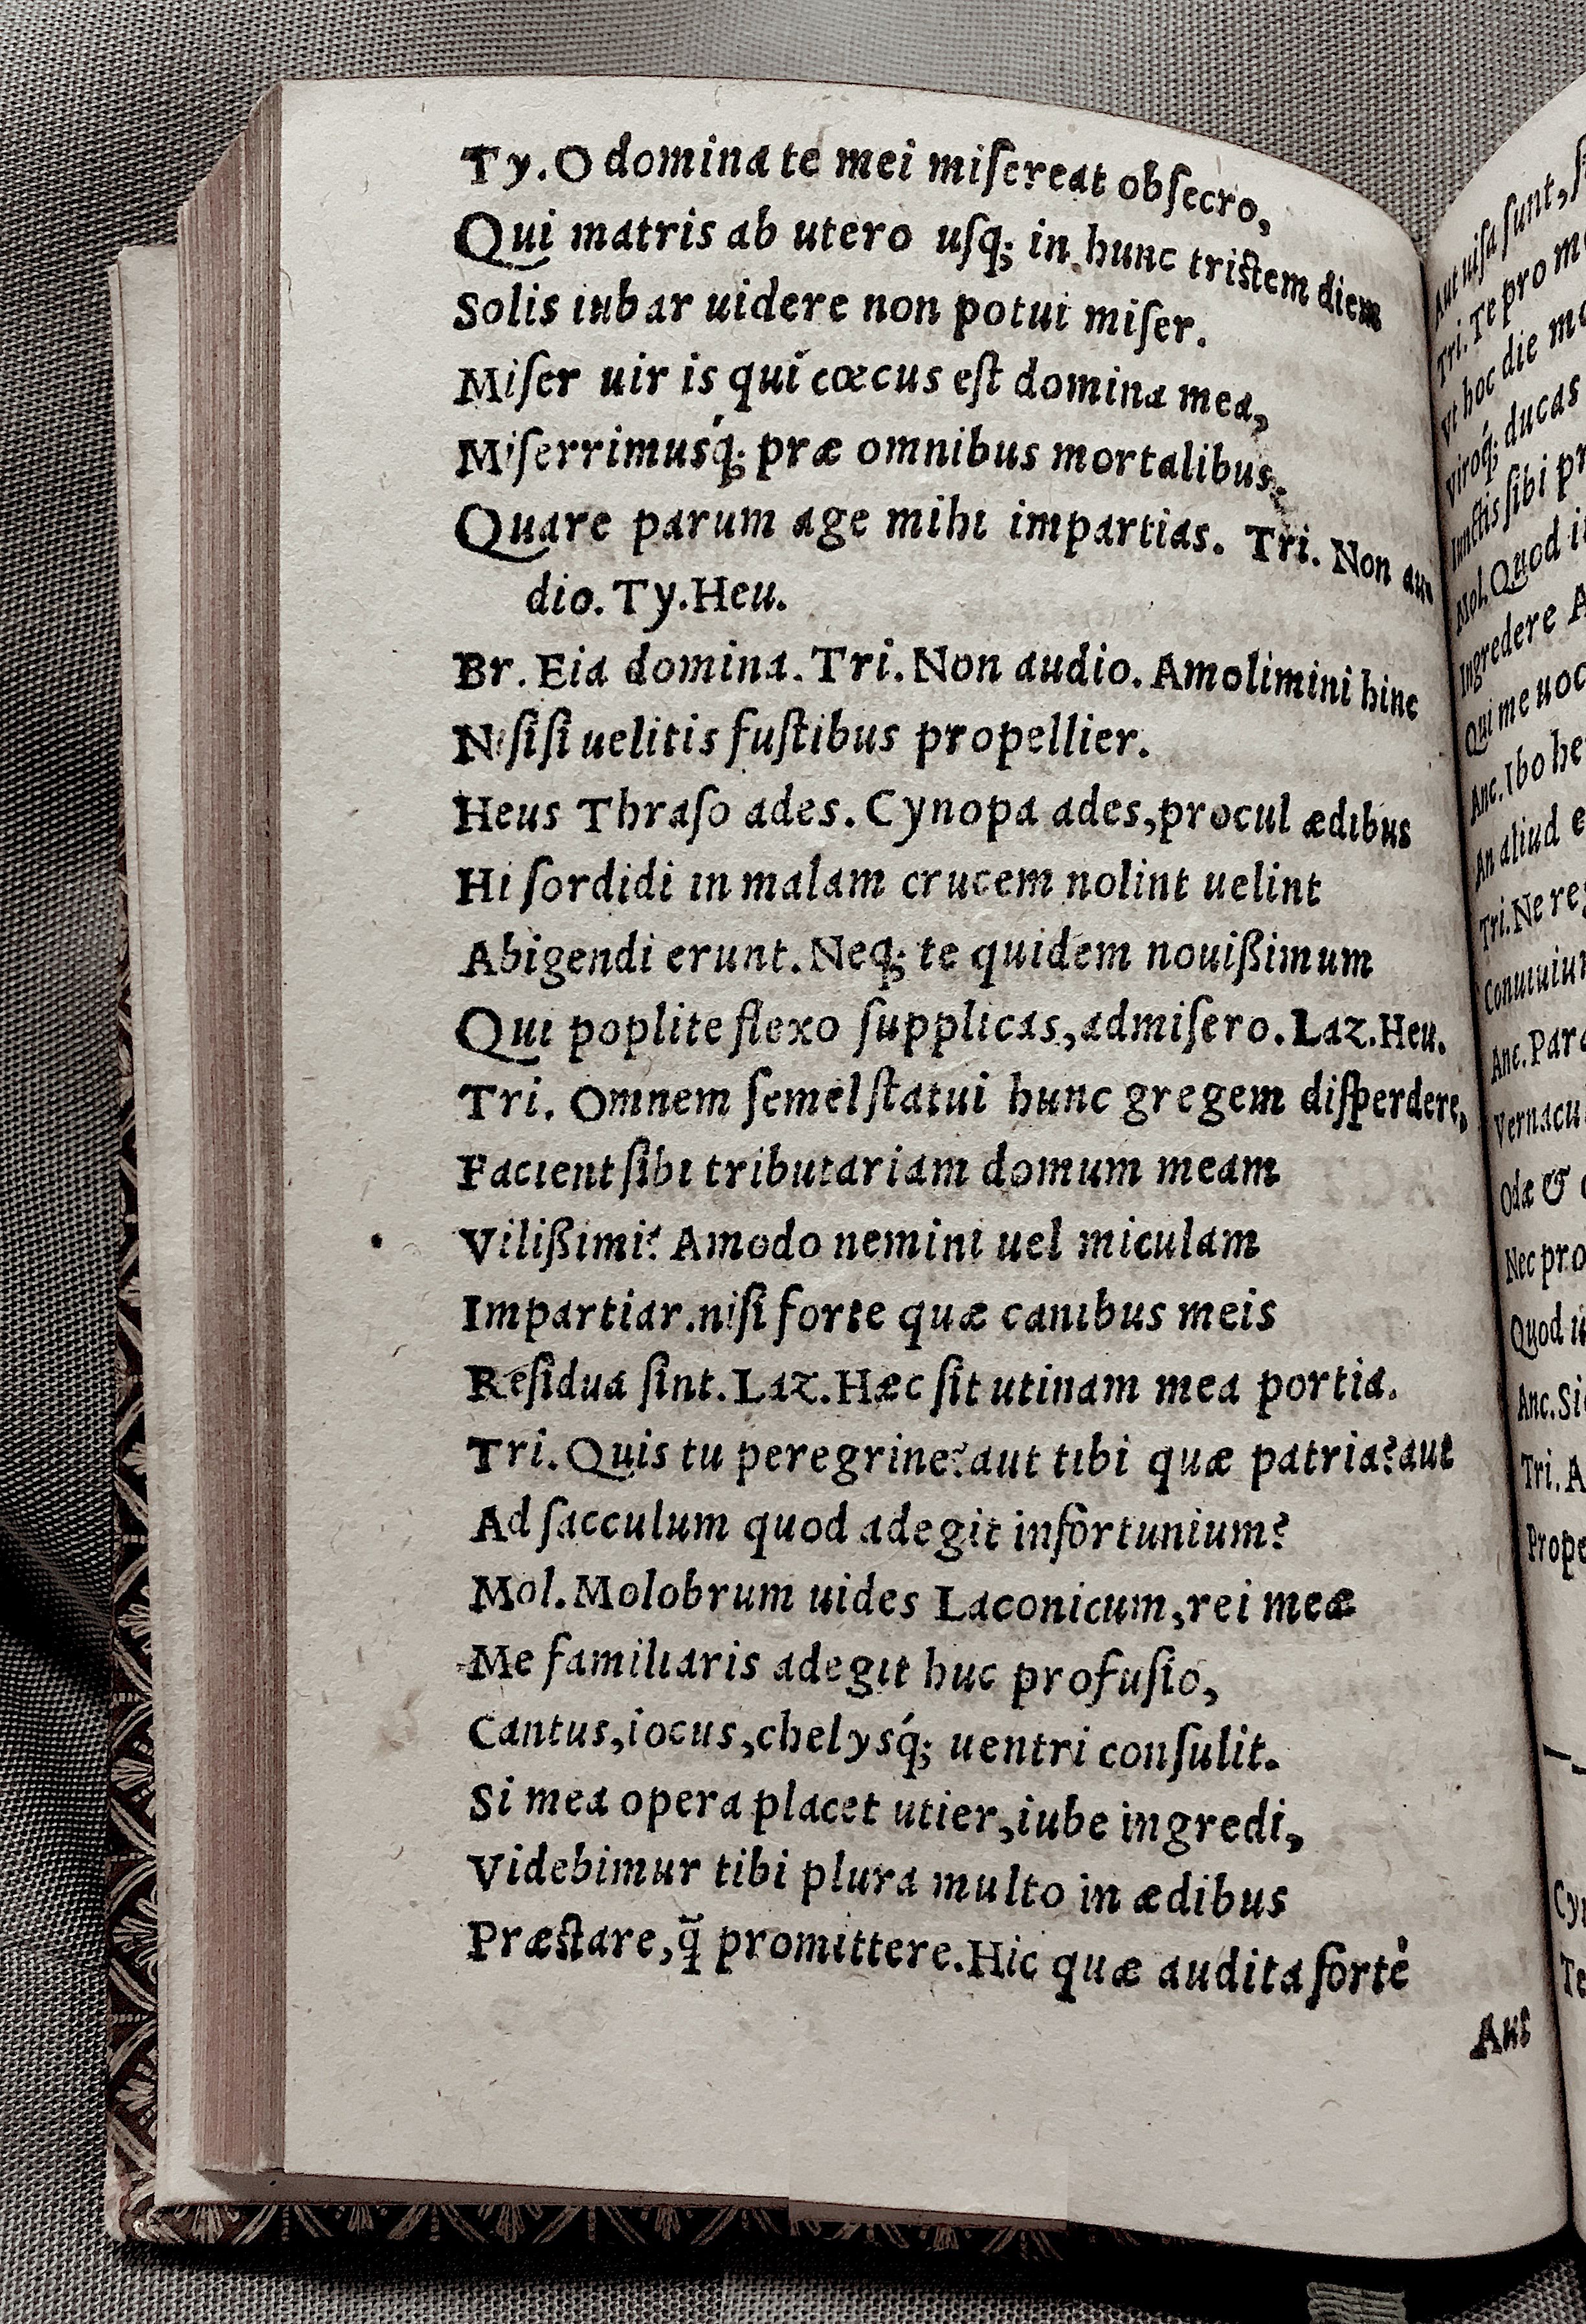 Ty. O domina te mei miſereat obſecro,
Qui matris ab utero uſq; in hunc triſtem diem
Solis iubar uidere non potui miſer.
Miſer uir is qui cœcus eſt domina mea,
Miſerrimusq́; præ omnibus mortalibus.
Quare parum age mihi impartias. Tri. Non au
dio. Ty. Heu.
Br. Eia domina. Tri. Non audio. Amolimini hinc
Niſi ſi uelitis fuſtibus propellier.
Heus Thraſo ades. Cynopa ades, procul ædibus
Hi ſordidi in malam crucem nolint uelint
Abigendi erunt. Neq; te quidem nouißimum
Qui poplite flexo ſupplicas, admiſero. Laz. Heu.
Tri. Omnem ſemel ſtatui hunc gregem diſperdere,
Facient ſibi tributariam domum meam
Vilißimi? Amodo nemini uel miculam
Impartiar. niſi forte quæ canibus meis
Reſidua ſint. Laz. Hæc ſit utinam mea portia.
Tri. Quis tu peregrine? aut tibi quæ patria? aut
Ad ſacculum quod adegit infortunium?
Mol. Molobrum uides Laconicum, rei meæ
Me familiaris adegit huc profuſio,
Cantus, iocus, chelysq́; uentri conſulit.
Si mea opera placet utier, iube ingredi,
Videbimur tibi plura multo in ædibus
Præſtare, q̃ promittere. Hic quæ audita fortè
Aut
Aut uiſa ſunt,
Tri. Te pro
Vt hoc die
Viroq́; ducas
Iunctis ſibi
Mol. Quod
Ingredere
Qui me
Anc. Ibo
An aliud
Tri. Ne
Anc.
Odæ &
Nec
Quod
Anc.
Tri.